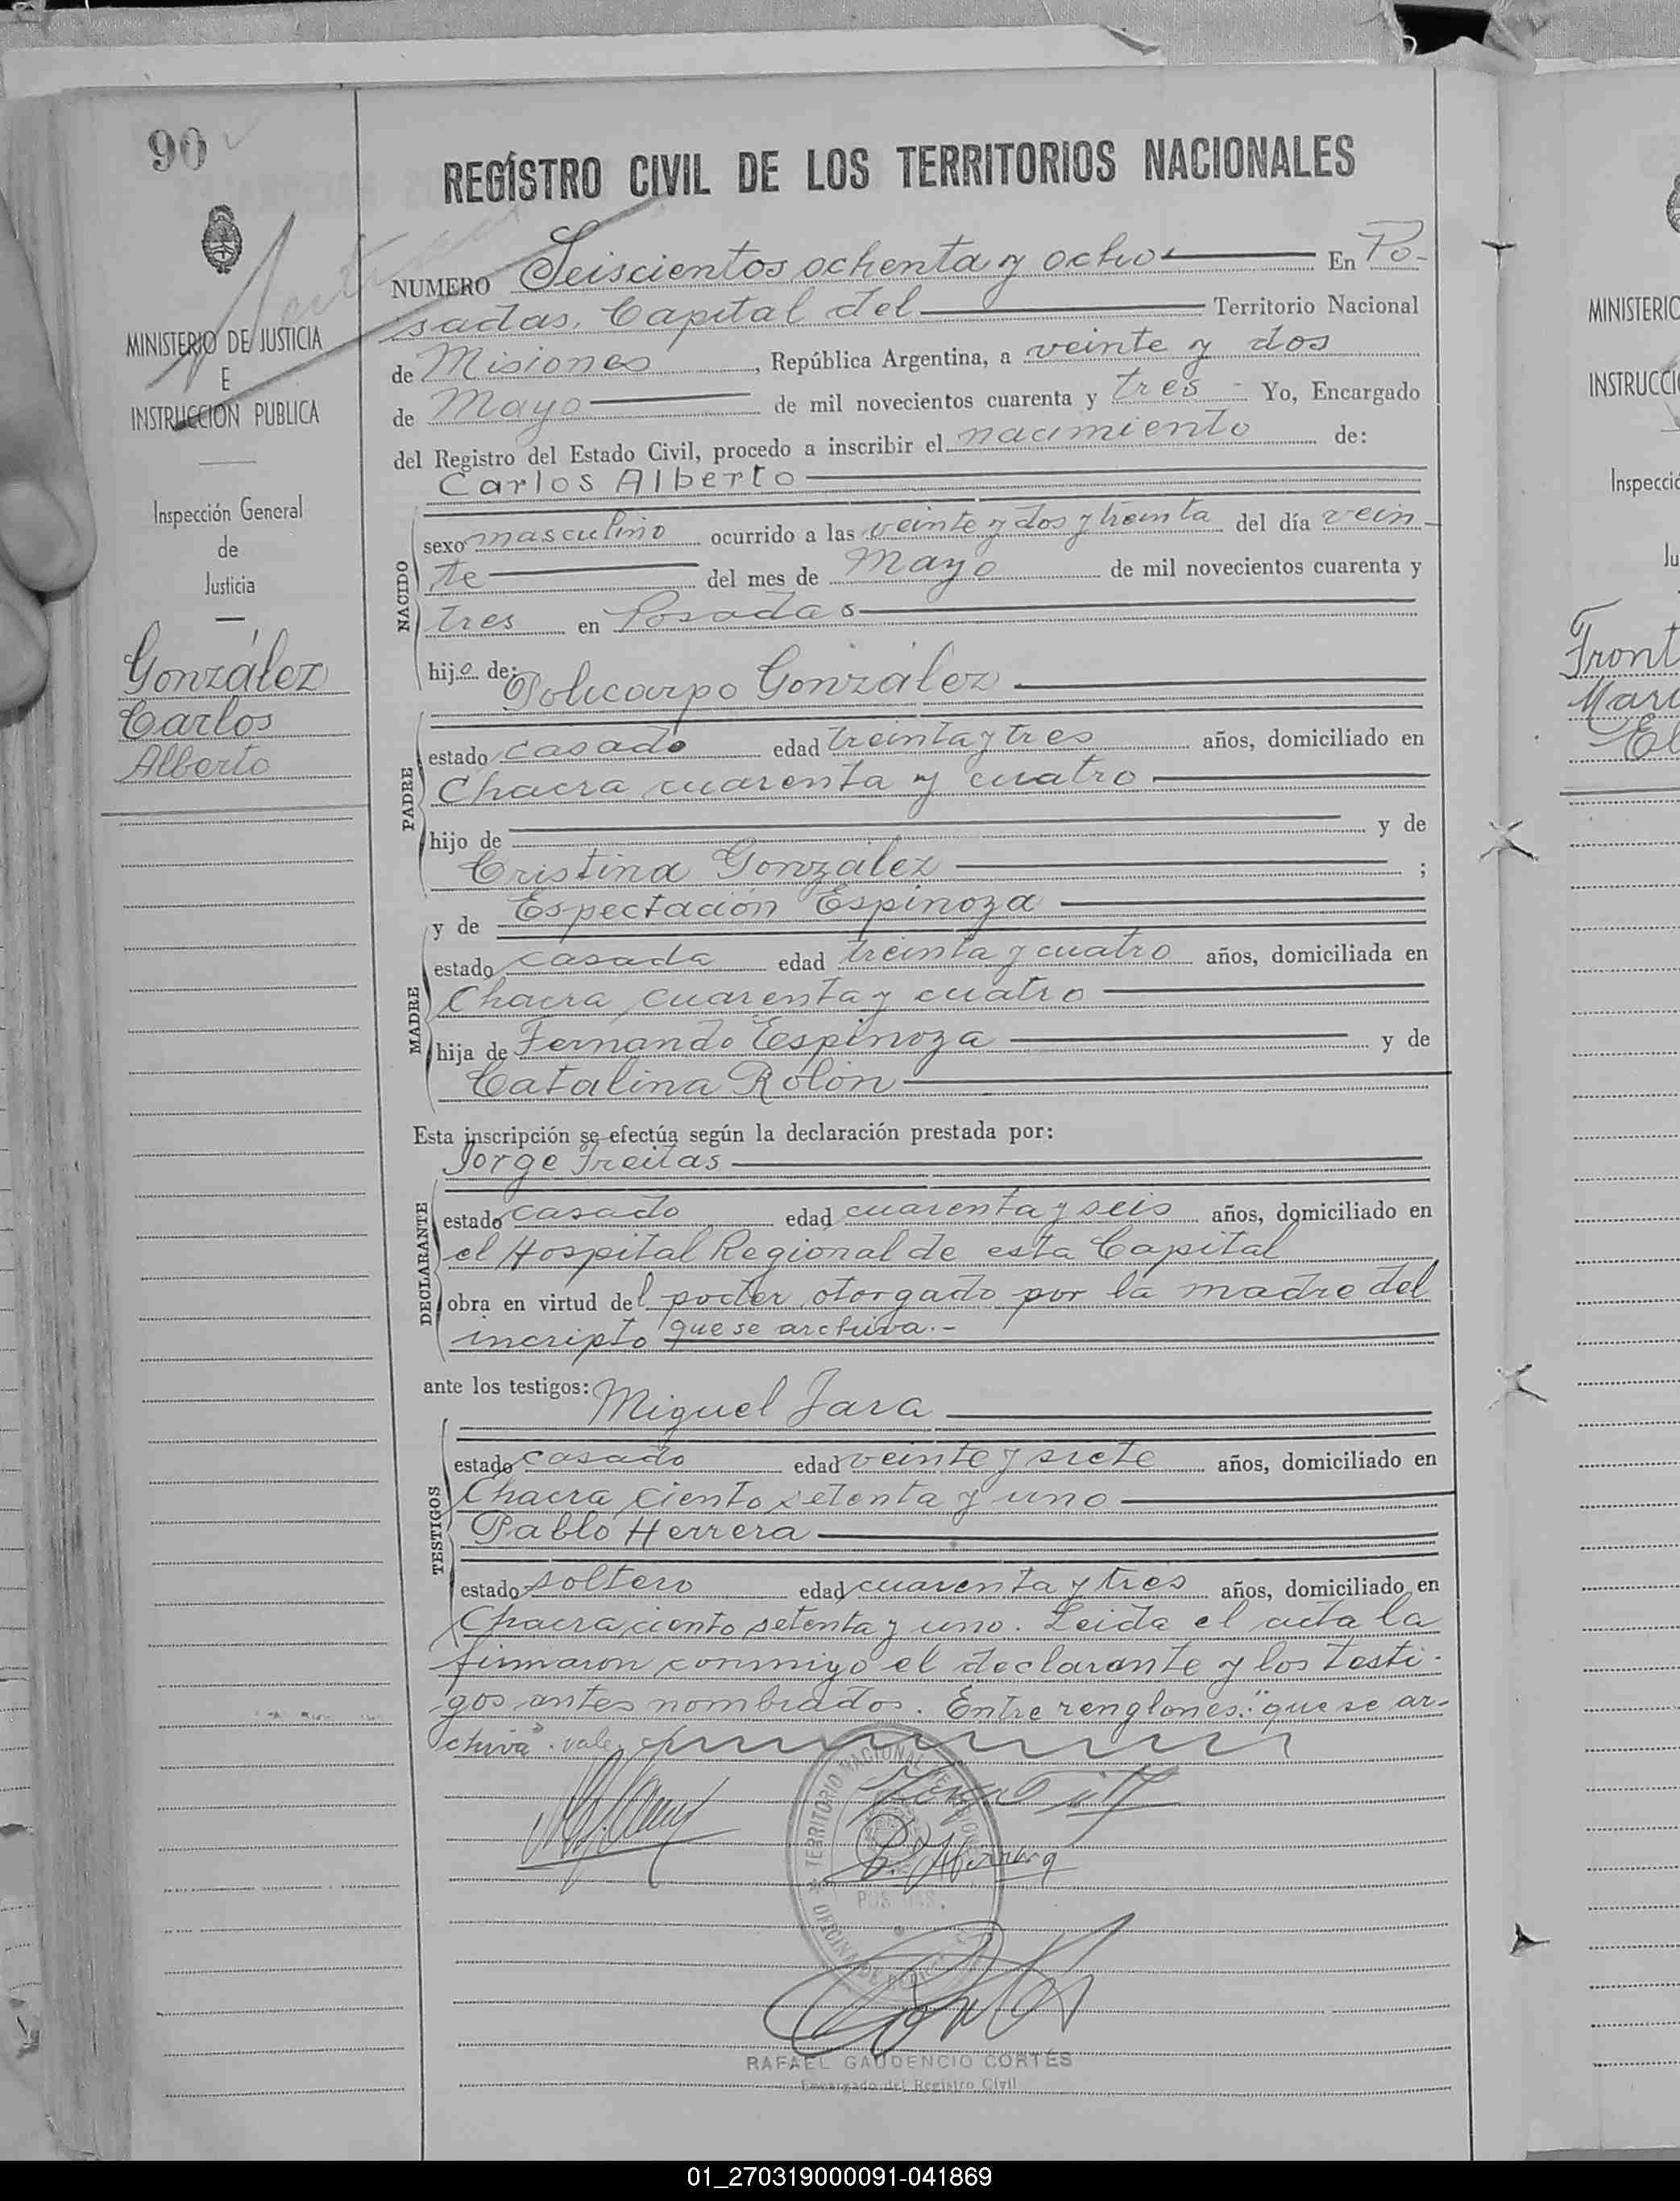 90
REGÍSTRO CIVIL DE LOS TERRITORIOS NACIONALES
MINISTERIO DE JUSTICIA
E
INSTRUCCIÓN PUBLICA
Inspección General
de
Justicia
González
Carlos
Alberto
NUMERO Seiscientos ochenta y ocho En Po-
sadas, Capital del Territorio Nacional
de Misiones, República Argentina, a veinte y dos
de Mayo de mil novecientos cuarenta y tres - Yo, Encargado
del Registro del Estado Civil, procedo a inscribir el nacimiento de:
Carlos Alberto
NACIDO
sexo masculino ocurrido a las veinte y dos y treinta del día vein-
te del mes de Mayo de mil novecientos cuarenta y
tres en Posadas
hijo de: Policarpo González
PADRE
estado casado edad treinta y tres años, domiciliado en
Chacra cuarenta y cuatro
hijo de y de
Cristina González ;
y de Espectación Espinoza
MADRE
estado casada edad treinta y cuatro años, domiciliada en
Chacra cuarenta y cuatro
hija de Fernando Espinoza y de
Catalina Rolón
Esta inscripción se efectúa según la declaración prestada por:
Jorge Freitas
DECLARANTE
estado casado edad cuarenta y seis años, domiciliado en
el Hospital Regional de esta Capital
obra en virtud del poder otorgado por la madre del
incripto que se archiva.-
ante los testigos: Miguel Jara
TESTIGOS
estado casado edad veinte y siete años, domiciliado en
Chacra ciento setenta y uno
Pablo Herrera
estado soltero edad cuarenta y tres años, domiciliado en
Chacra ciento setenta y uno. Leida el acta la
firmaron conmigo el declarante y los testi-
gos antes nombrados. Entre renglones: "que se ar-
chiva". vale
TERRITORIO NACIONAL DE MISIONES
POSADAS.
P. Herrera
RAFAEL GAUDENCIO CORTÉS
Encargado del Registro Civil
MINISTERIO
INSTRUCCI
Inspecció
Ju
Front
Mari
El
01_270319000091-041869